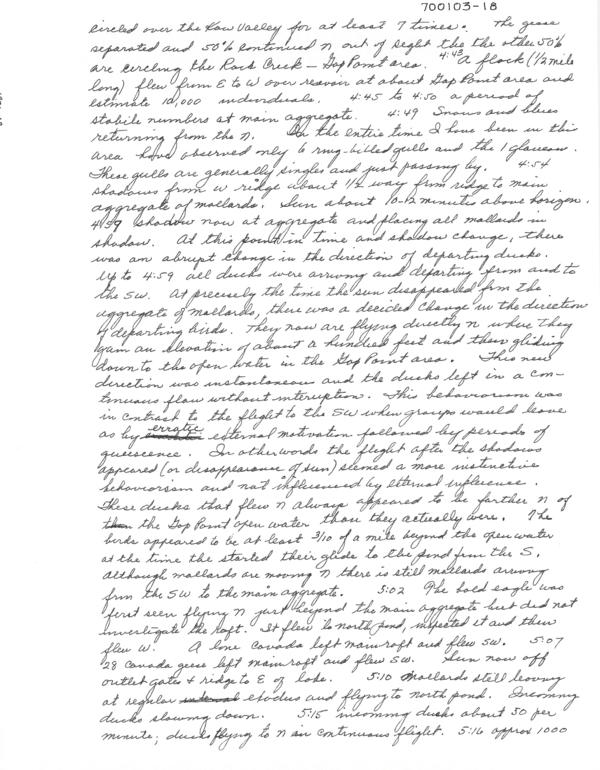 700103-18
circled over the Kaw Valley for at least 7 times. The geese
separated and 50% continued N out of sight the the other 50%
are circling the Rock Creek – Gap Point area. 4:43 A flock (1/2 mile
long) flew from E to W over resevoir at about Gap Point area and
estimate 10,000 individuals. 4:45 to 4:50 a period of
stabile numbers at main aggregate. 4:49 Snows and blues
returning from the N. In the entire time I have been in this
area have observed only 6 ring-billed gulls and the 1 glaucous.
These gulls are generally singles and just passing by. 4:54
shadows from W ridge about 1/2 way from ridge to main
aggregate of mallards. Sun about 10-12 minutes above horizon.
4:59 shadow now at aggregate and placing all mallards in
shadow. At this point in time and shadow change, there
was an abrupt change in the direction of departing ducks.
Up to 4:59 all ducks were arriving and departing from and to
the SW. At precisely the time the sun disappeared from the
aggregate of mallards, there was a decided change in the direction
of departing birds. They now are flying directly N where they
gain an elevation of about a hundred feet and then gliding
down to the open water in the Gap Point area. This new
direction was instantaneous and the ducks left in a con-
tinuous flow without interuption. This behaviorism was
in contrast to the flight to the SW when groups would leave
as by erratic external motivation followed by periods of
quiescence. In other words the flight after the shadows
appeared (or disappearance of sun) seemed a more instinctive
behaviorism and not influenced by external influence.
These ducks that flew N always appeared to be farther N of
the Gap Point open water than they actually were. The
birds appeared to be at least 3/10 of a mile beyond the open water
at the time the started their glide to the pond from the S.
Although mallards are moving N there is still mallards arriving
from the SW to the main aggregate. 5:02 The bald eagle was
first seen flying N just beyond the main aggregate but did not
investigate the raft. It flew to north pond, inspected it and then
flew W. A lone Canada left main raft and flew SW. 5:07
28 Canada geese left main raft and flew SW. Sun now off
outlet gates & ridge to E of lake. 5:10 Mallards still leaving
at regular exodus and flying to north pond. Incoming
ducks slowing down. 5:15 incoming ducks about 50 per
minute; ducks flying to N in continuous flight. 5:16 approx 1000